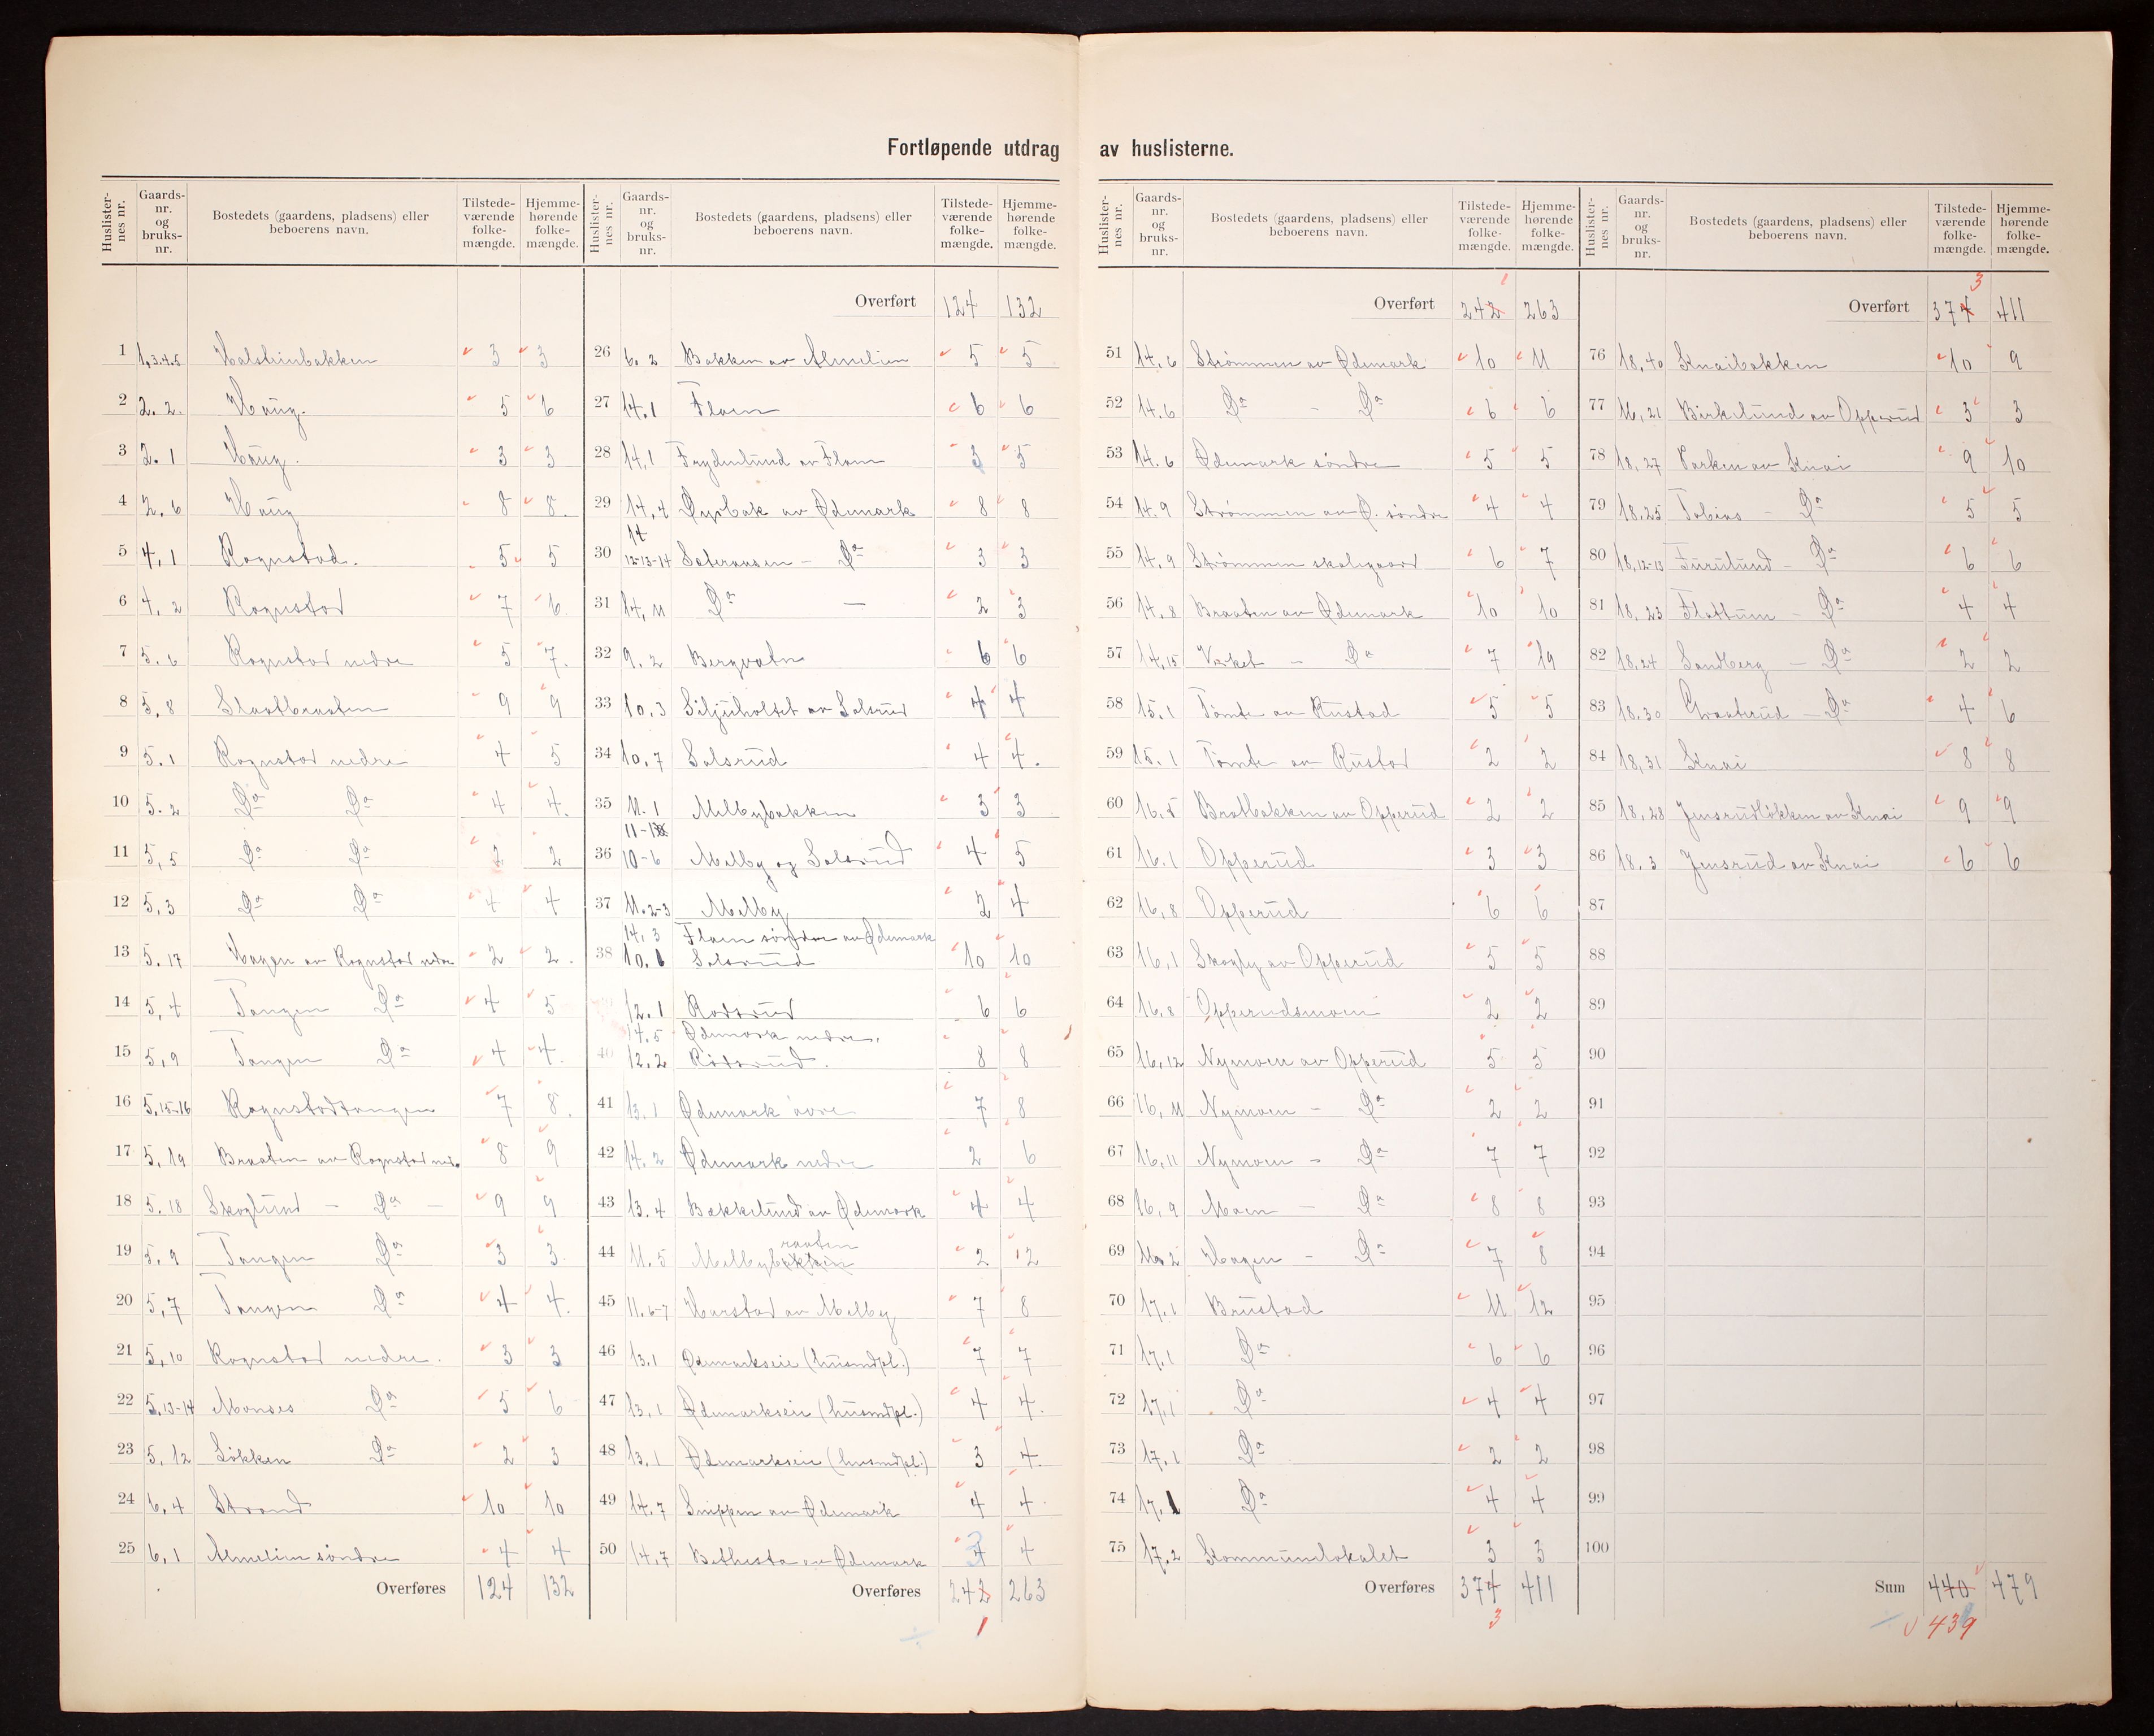 Fortløpende utdrag av huslisterne.
Huslister-nes nr. Gaards-nr. og bruks-nr. Bostedets (gaardens, pladsens) eller beboerens navn. Tilstede-værende folke-mængde. Hjemme-hørende folke-mængde.
1 1,3.4.5 Halsteinbakken 3 3
2 2.2. Haug. 5 6
3 2.1 Haug. 3 3
4 2.6 Haug 8 8.
5 4,1 Rognstad. 5 5
6 4,2 Rognstad 7 6
7 5.6 Rognstad nedre 5 7.
8 5,8 Slaatbraaten 9 9
9 5.1 Rognstad nedre 4 5
10 5.2 Do Do 4 4.
11 5,5 Do Do 2 2
12 5,3 Do Do 4 4
13 5.17 Hagen av Rognstad nedre 2 2.
14 5,4 Tangen Do 4 5
15 5,9 Tangen Do 4 4.
16 5,15-16 Rognstadtangen 7 8.
17 5,19 Braaten av Rognstad ned. 8 9
18 5.18 Skoglund - Do - 9 9
19 5.9 Tangen Do 3 3.
20 5,7 Tangen Do 4 4.
21 5,10 Rognstad nedre. 3 3
22 5,13-14 Monses Do 5 6
23 5,12 Løkken Do 2 3
24 6,4 Strand 10 10
25 6,1 Almelien søndre 4 4
Overføres 124 132
Huslister-nes nr. Gaards-nr. og bruks-nr. Bostedets (gaardens, pladsens) eller beboerens navn. Tilstede-værende folke-mængde. Hjemme-hørende folke-mængde.
Overført 124 132
26 6.2 Bakken av Almelien 5 5
27 14.1 Flaen 6 6
28 14,1 Frydenlund av Flaen 3 5
29 14,4 Dyrbak av Ødemark 8 8
30 14 12-13-14 - Do 3 3
31 14,11 Do — 2 3
32 9.2 Bergvatn 6 6
33 10.3 Siljuholtet av Solsrud 4 4
34 10,7 Solsrud 4 4.
35 11.1 Melbybakken 3 3
36 10-6 Melby og Solsrud 4 5
37 11.2-3 Melby 2 4
14,3 Flaen søndre av Ødemark
38 10.6 Solsrud 10 10
12.1 Rodsrud 6 6
14.5 Ødemark nedre.
40 12.2 Rodsrud. 8 8
41 13.1 Ødemark øvre 7 8
42 14.2 Ødemark nedre 2 6
43 13.4 Bakkelund av Ødemark 4 4
raaten
44 11.5 Melbybakken 2 12
45 11.6-7 Harstad av Melby 7 8
46 13.1 Ødemarkseie (husmdpl.) 7 7
47 13,1 Ødemarkseie (husmdpl.) 4 4.
48 13,1 Ødemarkseie (husmdpl.) 3 4.
49 14.7 Snippen av Ødemark 4 4
50 14,7 Bethesta av Ødemark 3 4
Overføres 242 263
1
Huslister-nes nr. Gaards-nr. og bruks-nr. Bostedets (gaardens, pladsens) eller beboerens navn. Tilstede-værende folke-mængde. Hjemme-hørende folke-mængde.
1
Overført 242 263
51 14.6 Strømmen av Ødemark 10 11
52 14.6 Do - Do 6 6
53 14.6 Ødemark søndre 5 5
54 14.9 Strømmen av Ø. søndre 4 4
55 14.9 Strømmen skolegaard 6 7
56 14,8 Braaten av Ødemark 10 10
57 14,15 Verket - Do 7 19
58 15.1 Tomte av Rustad 5 5
59 15.1 Tomte av Rustad 2 2
60 16.5 Bratbakken av Opperud 2 2
61 16.1 Opperud 3 3
62 16,8 Opperud 6 6
63 16,1 Skogly av Opperud 5 5
64 16.8 Opperudsmoen 2 2
65 16,12 Nymoen av Opperud 5 5
66 16,11 Nymoen - Do 2 2
67 16,11 Nymoen - Do 7 7
68 16,9 Moen - Do 8 8
69 16.2 Hagen - Do 7 8
70 17.1 Brustad 11 12
71 17,1 Do 6 6
72 17,1 Do 4 4
73 17,1 Do 2 2
74 17,1 Do 4 4
75 17.2 Kommunelokalet 3 3
Overføres 374 411
3
Huslister-nes nr. Gaards-nr. og bruks-nr. Bostedets (gaardens, pladsens) eller beboerens navn. Tilstede-værende folke-mængde. Hjemme-hørende folke-mængde.
3
Overført 374 411
76 18,40 Knaibakken 10 9
77 16,21 Birkelund av Opperud 3 3
78 18,27 Parken av Knai 9 10
79 18,25 Tobias - Do 5 5
80 18,12-13 Furulund - Do 6 6
81 18,23 Flattum - Do 4 4
82 18,24 Sandberg - Do 2 2
83 18.30 Graaterud - Do 4 6
84 18,31 Knai 8 8
85 18,28 Jensrudløkken av Knai 9 9
86 18.3 Jensrud av Knai 6 6
87
88
89
90
91
92
93
94
95
96
97
98
99
100
Sum 440 479
439